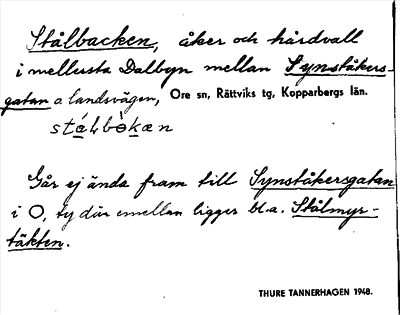 Stålbacken, åker och hårdvall
i mellersta Dalbyn mellan Synståkers-
gatan o landsvägen, Ore sn, Rättviks tg, Kopparbergs län.
Går ej ända fram till Synståkersgatan
i O, ty där emellan ligger bl.a. Stålmyr-
täkten.
THURE TANNERHAGEN 1948.